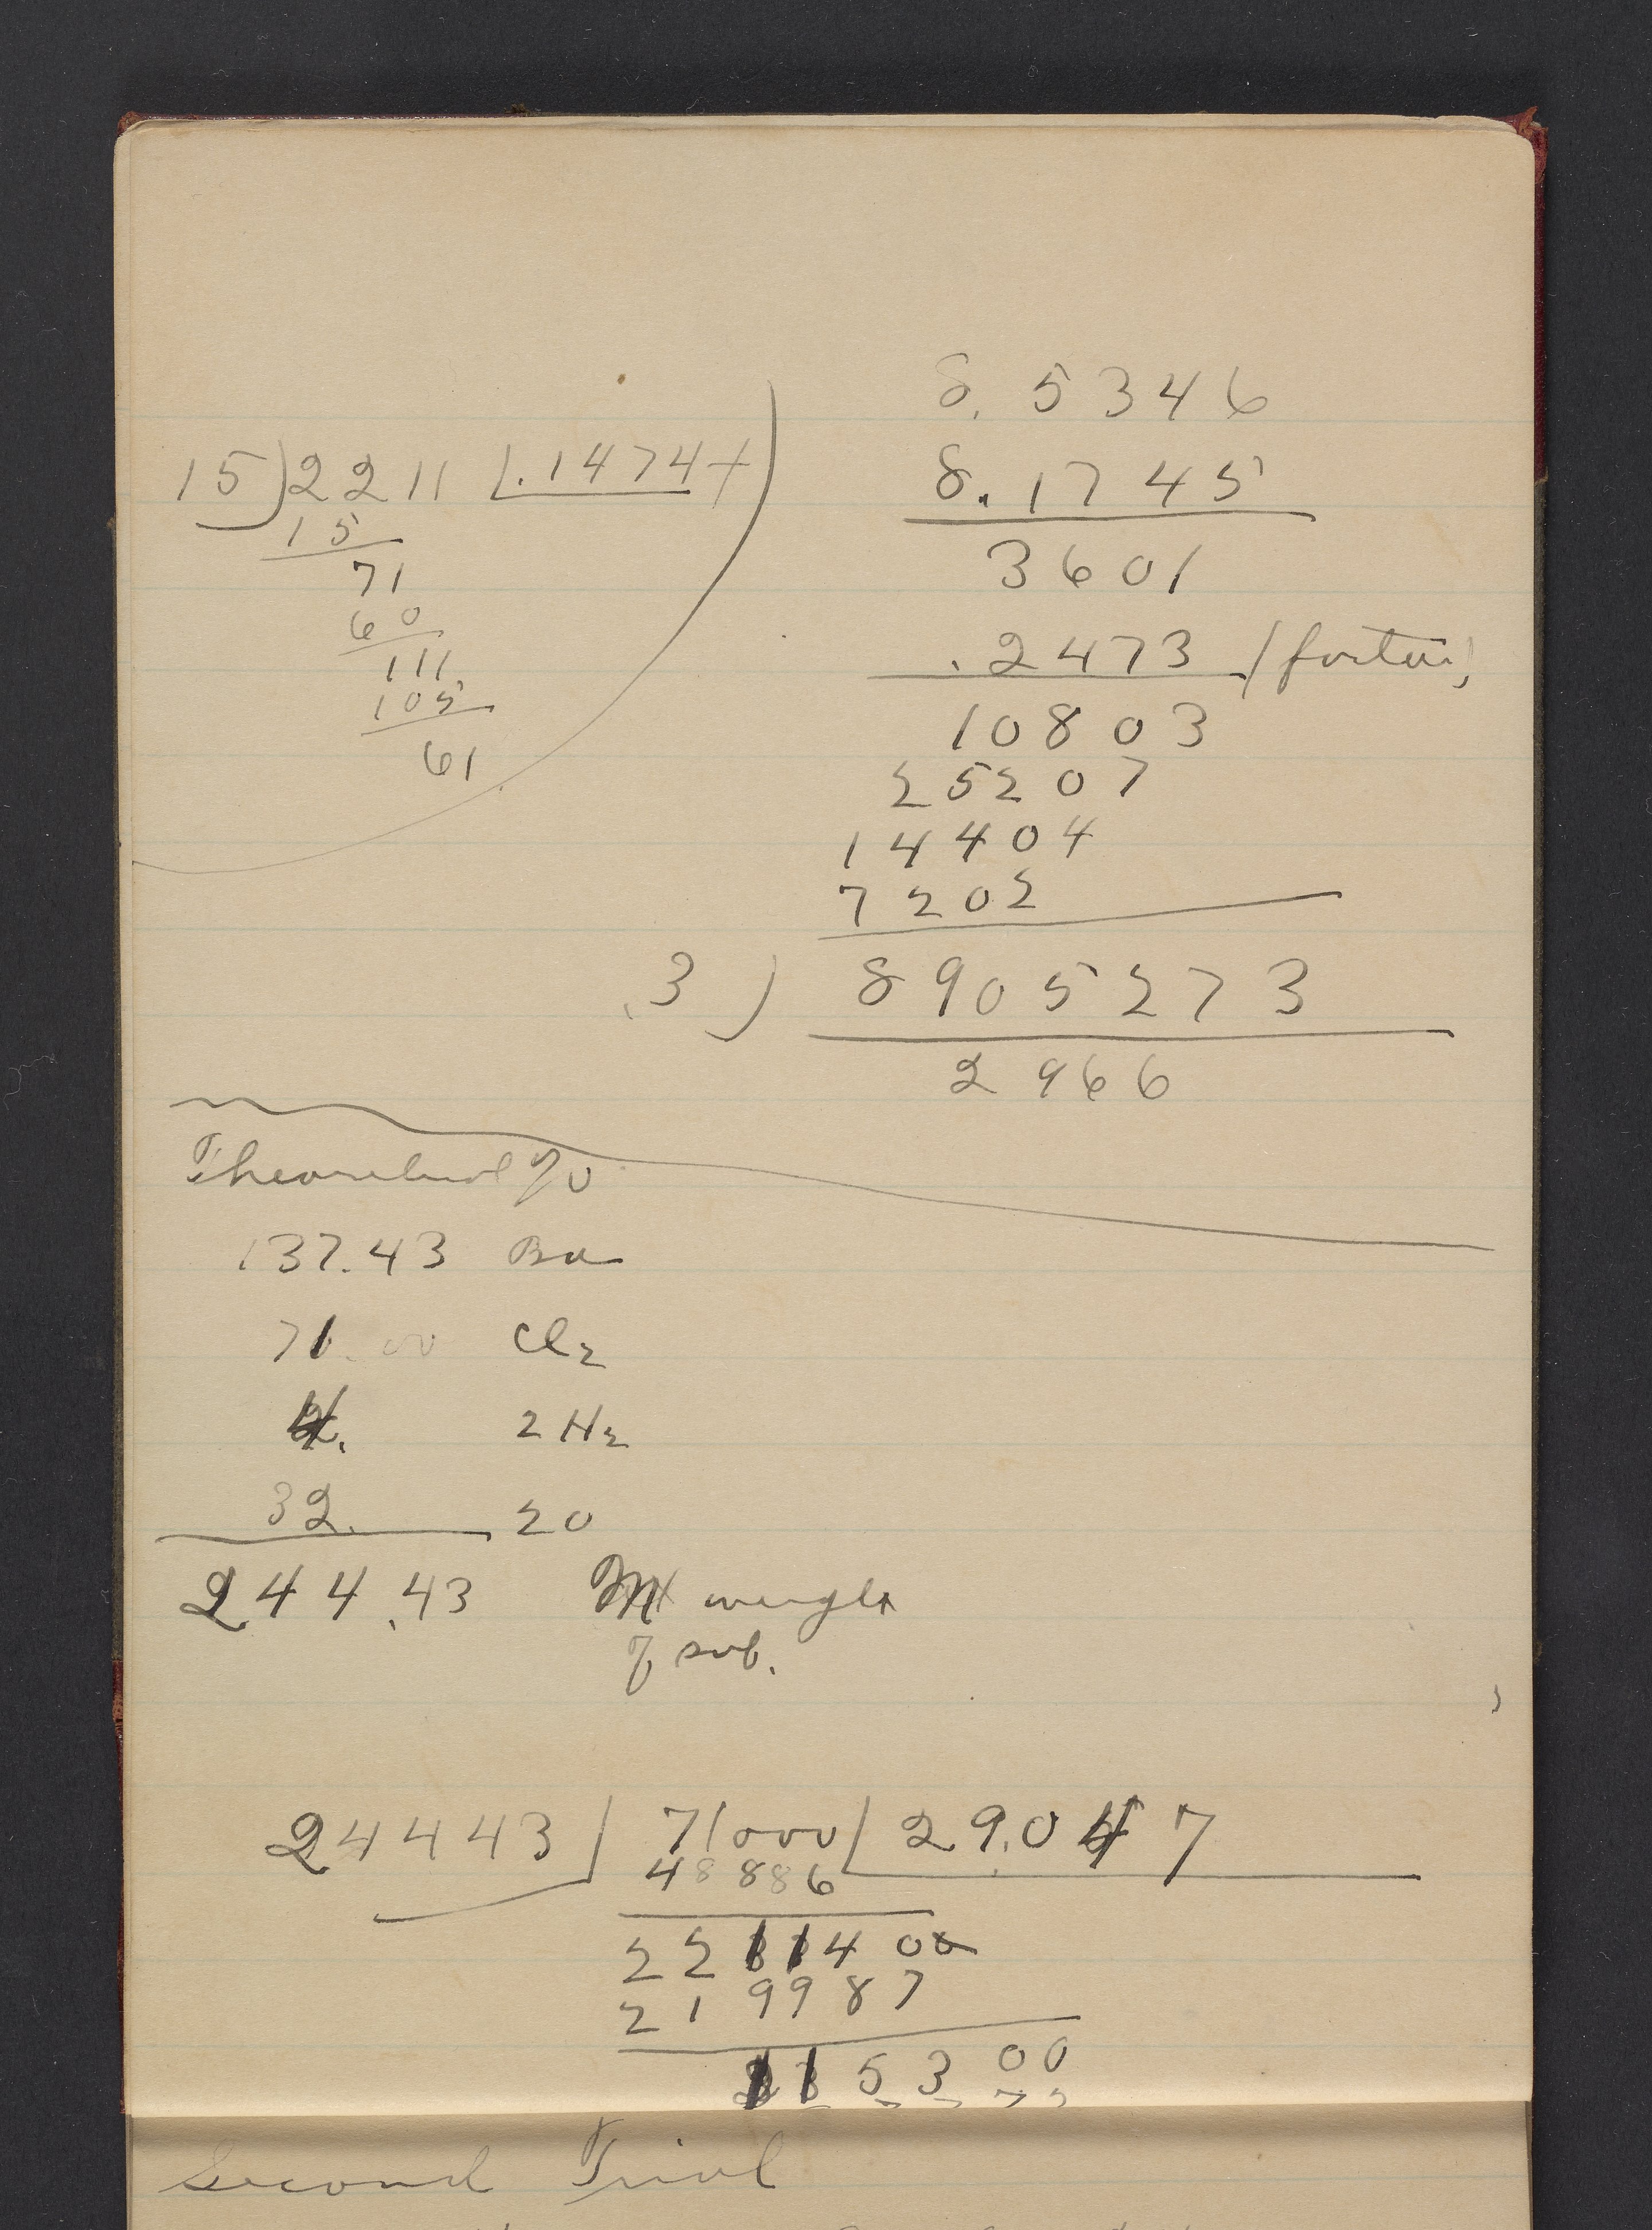 15)2211 |.1474+
15
71
60
111
105
61
8.5346
8.1745
3601
.2473 /factor
10803
25207
14404
7202
.3) 8905273
2966
Theoretical %
137.43 Ba
71.00 Cl2
4. 2H2
32. 2O
244.43 M weight
of sub.
24443/71000/29.047
48886
2211400
219987
115300
Second Trial